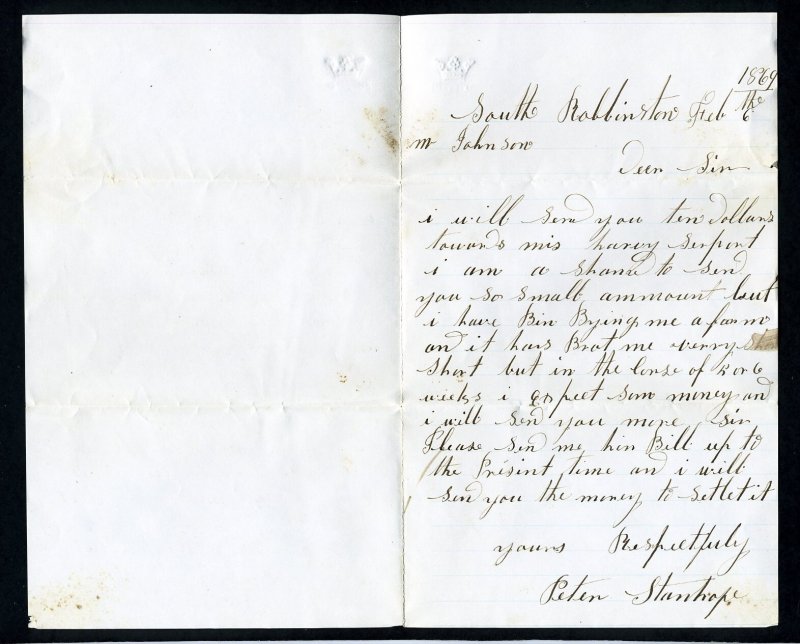 1869
South Robbinston Feb the 6
mr Johnson
Deer Sir
i will send you ten Dollars
towards mis harvy Serport
i am a shamd to send
you so small ammount but
i have Bin Bying me a farm
and it hars Brot me verry
Short but in the Corse of 5 or 6
weeks i expect som money and
i will send you more Sir
Please send me her Bill up to
the Present time and i will
send you the money to setlet it
yours Respectfuly
Peter Stanhope